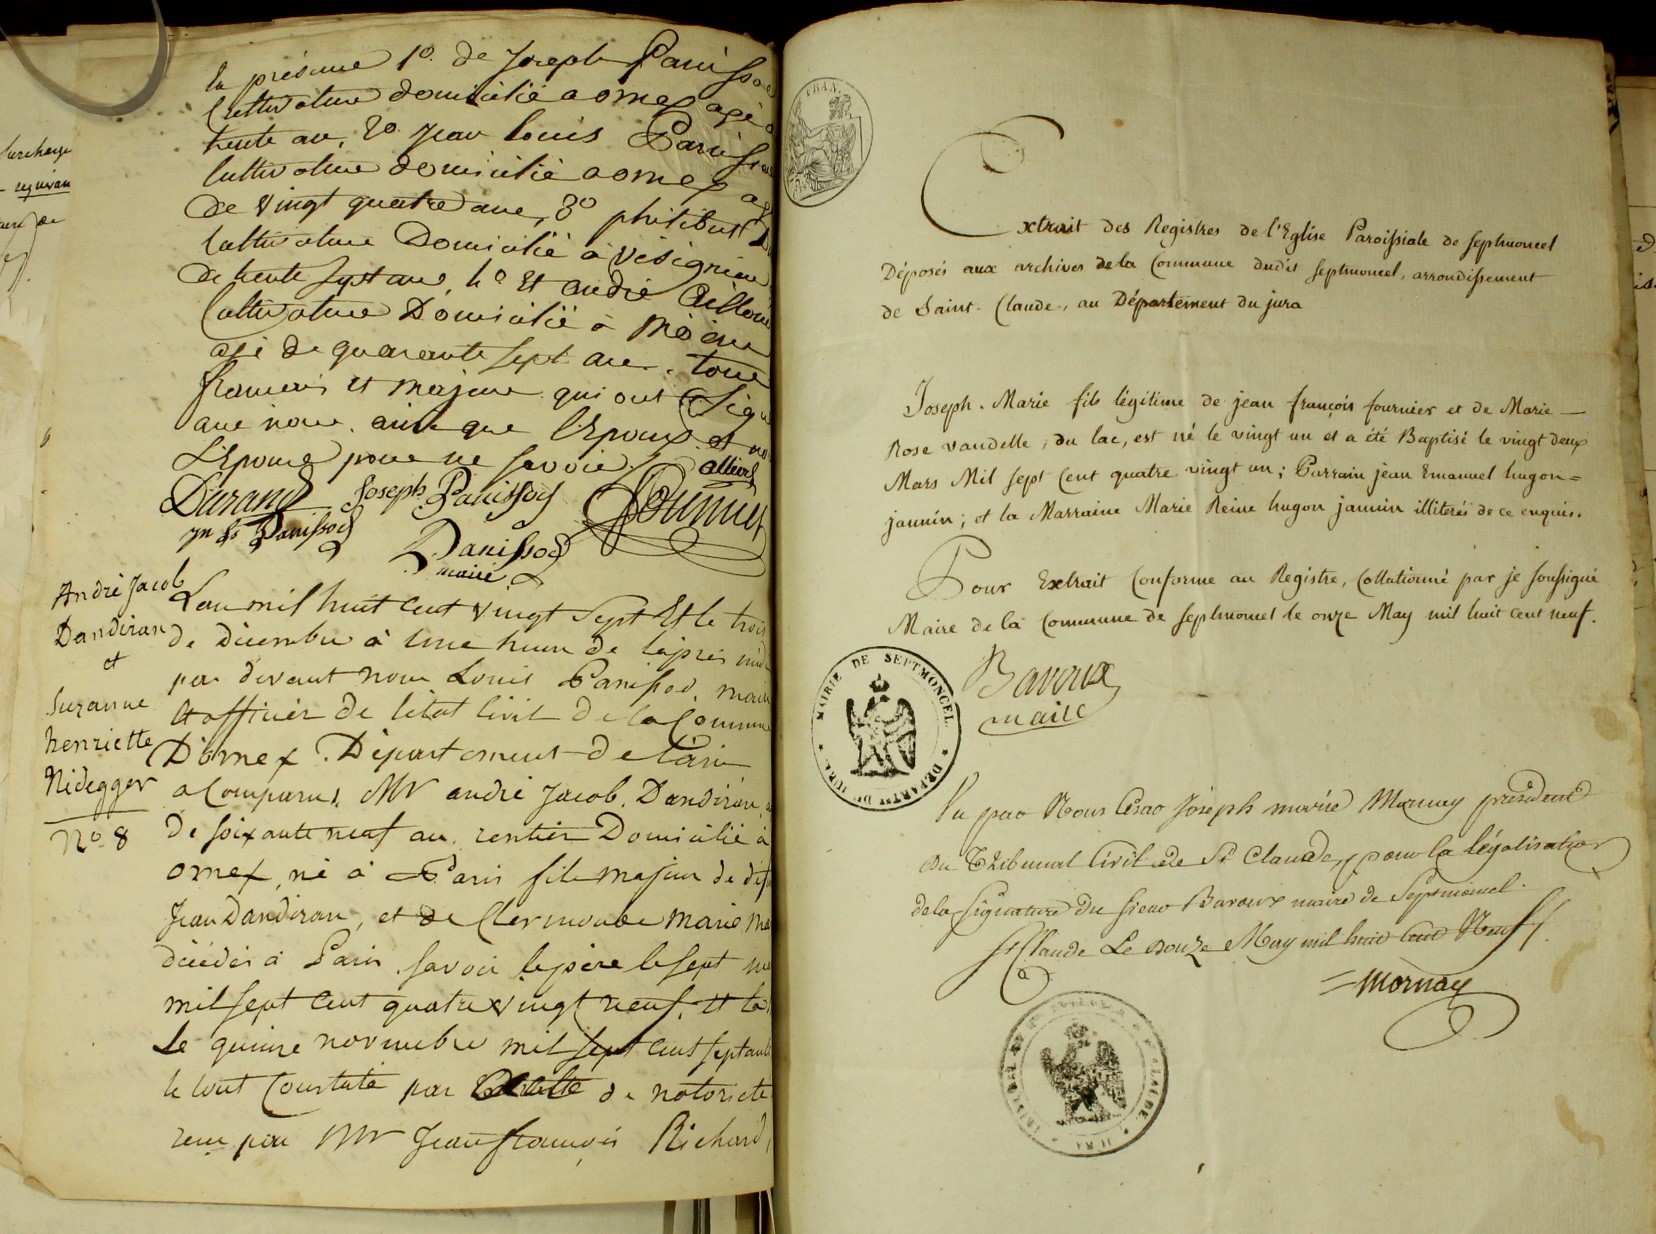 surcharge
la présence 1o. de Joseph Panissod
Cultivateur domicilié a ornex agé
trente an, 2o Jean Louis Panissod
Cultivateur domicilié a ornex
de vingt quatre ans, 3o philibert
Cultivateur Domicilié à Vésignieu
de trente sept ans, 4o Et andré
Cultivateur Domicilié à
agé de quarante sept ans. tous
francais et majeur qui ont Signé
avec nous. ainsi que l'Epoux et non
L'Epouse pour ne savoir.
Durand Joseph Panissod fournier
Jn Ls Panissod
Panissod
maire
André Jacob
Dandiran
et
Suzanne
henriette
Nidegger
No 8
L'an mil huit cent vingt sept Et le trois
de décembre à une heure de laprès midi
par devant nous Louis Panissod, maire
et officier de l'état Civil De la Commune
D'ornex. Département de l'ain
a Comparus. Mr andré Jacob. Dandiran
de soixante neuf an rentier Domicilié à
ornex, né à Paris fils majeur de
Jean Dandiran, et de Clermonde Marie
décédés à Paris savoir le père le sept
mil sept cent quatre vingt neuf. et la
Le quinze novembre mil sept cent septante
le tout Constaté par de notoriété
recu par Mr Jean françois Richard
Extrait des Registres de l'Eglise Paroissiale de Septmoncel
Déposés aux archives de la Commune dudit Septmoncel, arrondissement
de Saint-Claude, au Département du jura
Joseph-Marie fils légitime de jean françois fournier et de Marie
Rose vandelle, du lac, est né le vingt un et a été Baptisé le vingt deux
Mars Mil sept Cent quatre vingt un; Parrain jean Emanuel hugon=
jannin; et la Marraine Marie Reine hugon jannin illiterés de ce enquis.
Pour Extrait Conforme au Registre, Collationné par je soussigné
Maire de la Commune de Septmoncel le onze May mil huit cent neuf.
Baroux
maire
MAIRIE DE SEPTMONCEL
DÉPARTT DU JURA
Vu par Nous César Joseph marie Mornay président
du Tribunal Civil de St Claude, pour la légalisation
de la Signature du Sieur Baroux maire de Septmoncel.
St Claude Le Douze May mil huit Cent Neuf.
Mornay